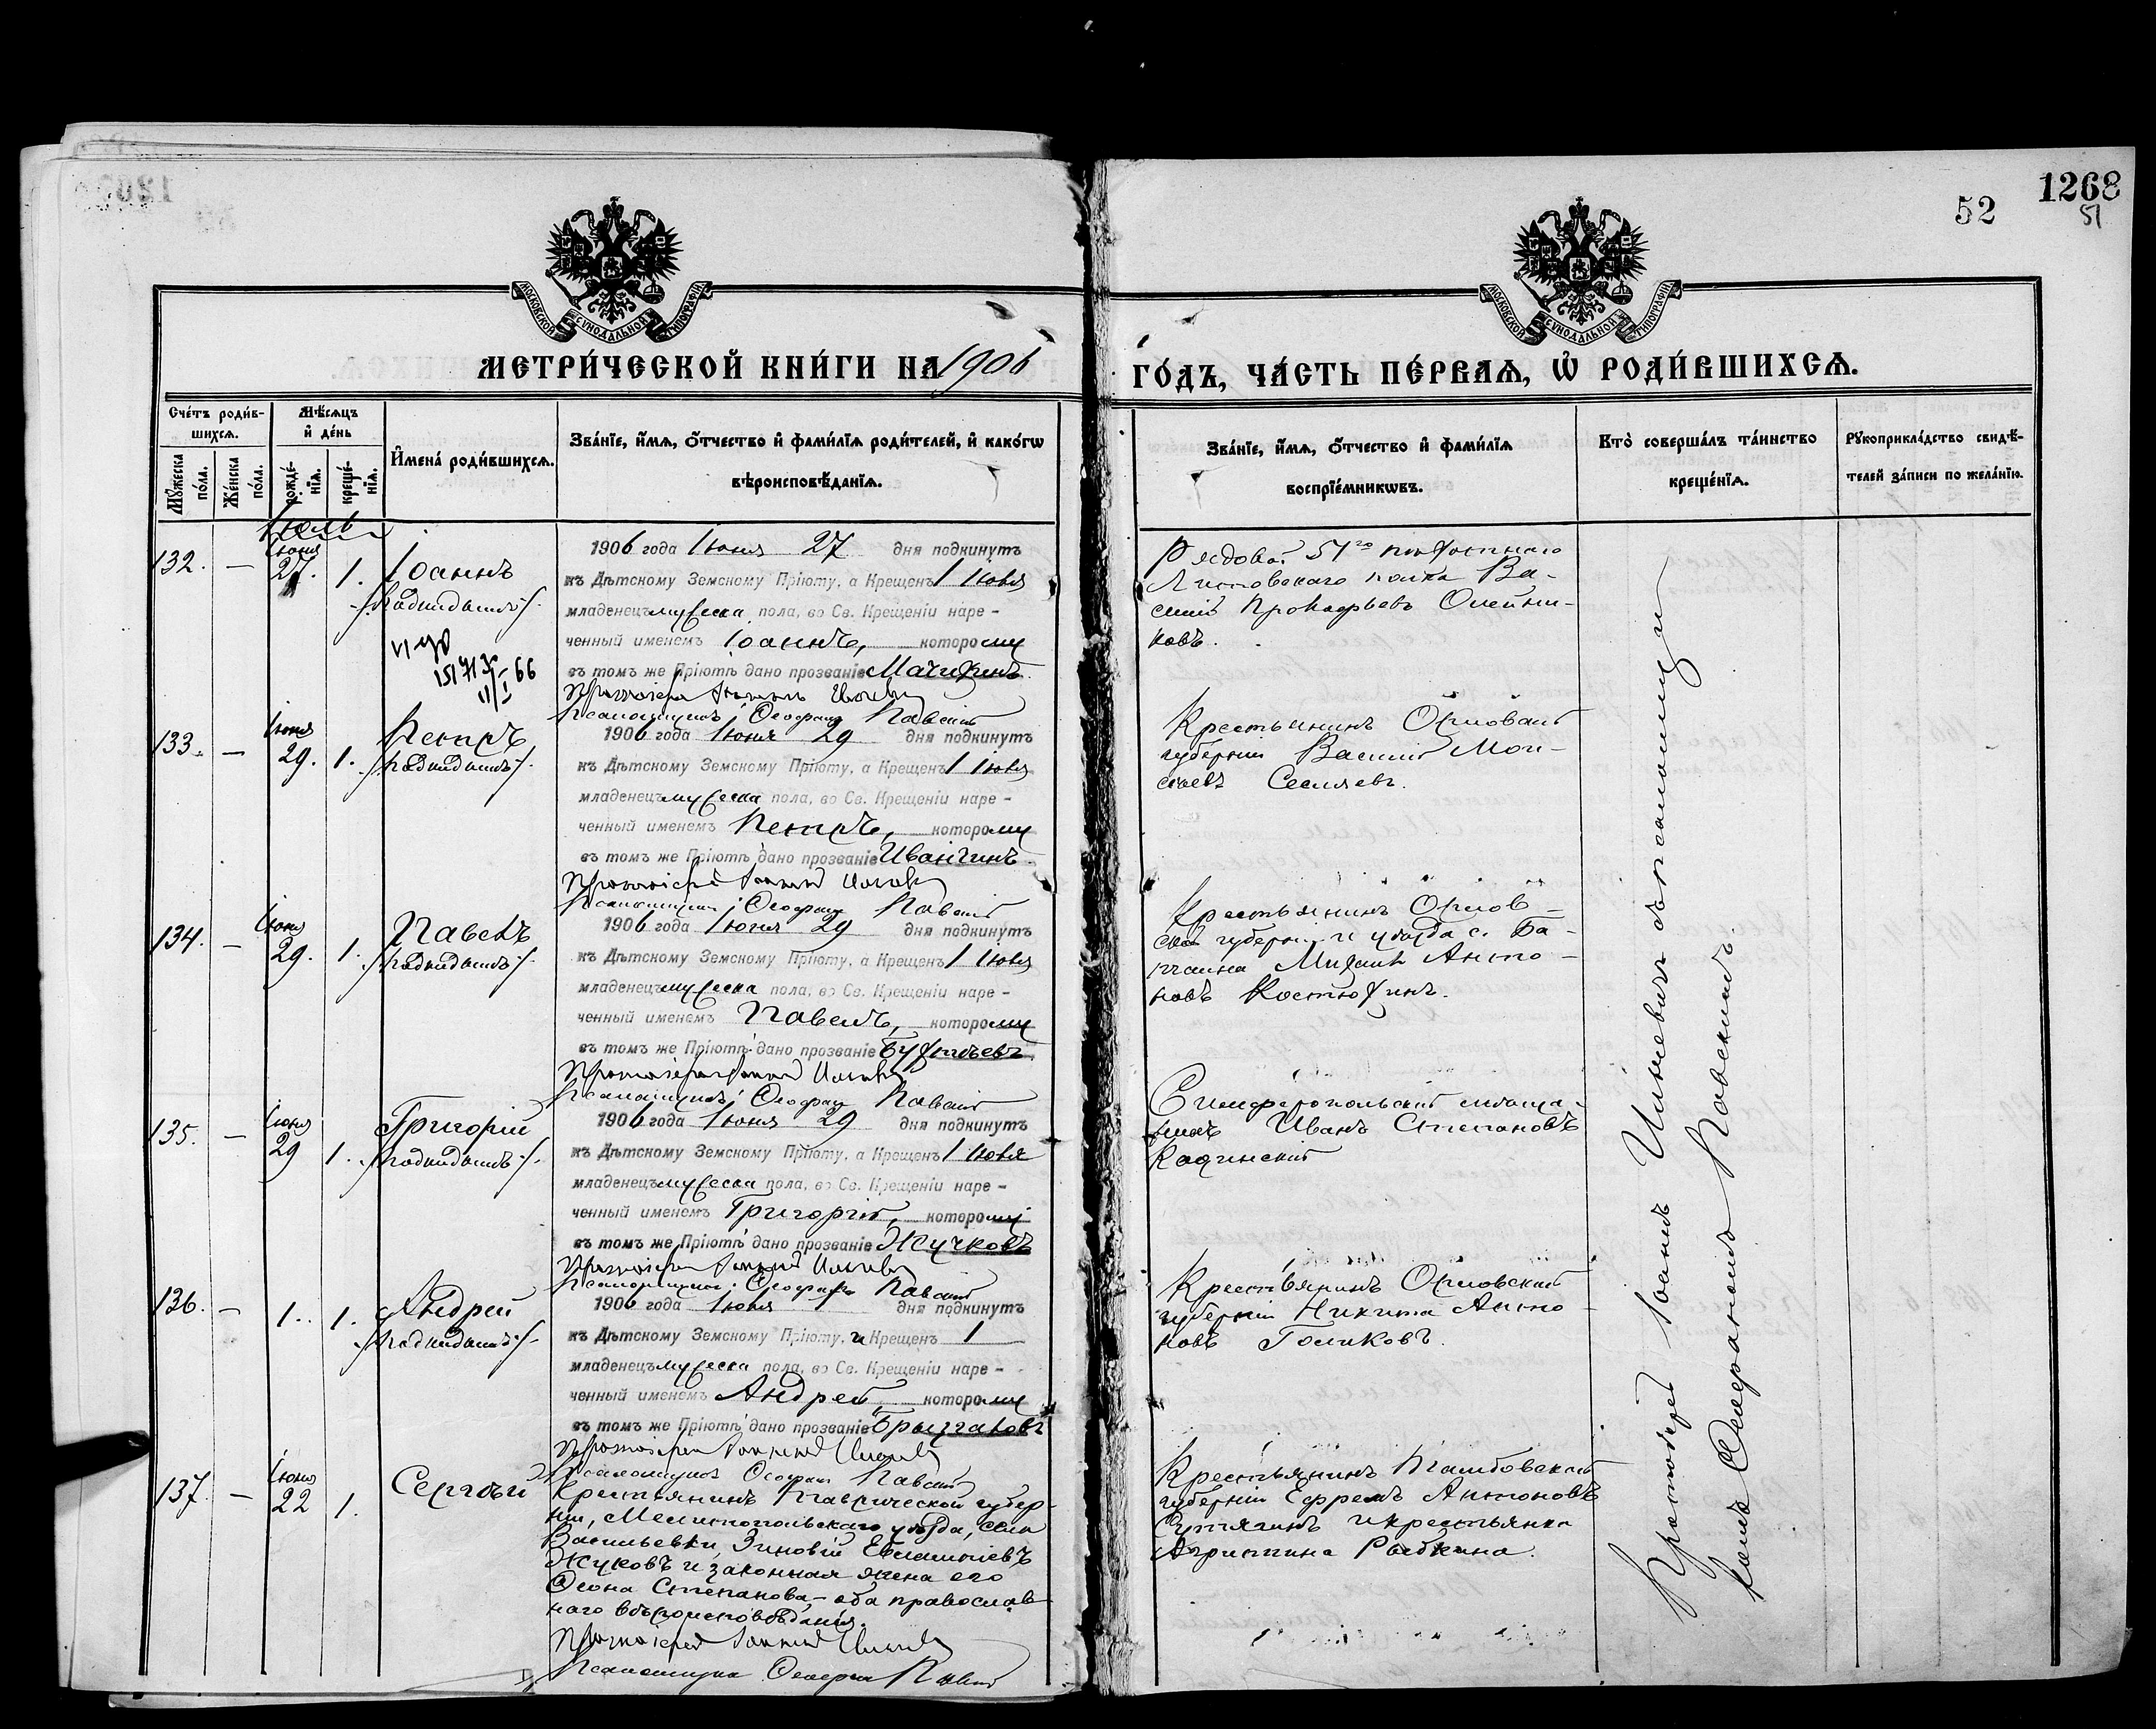 1268
52
51
МОСКОВСКОЙ СѴНОДАЛЬНОЙ ТИПОГРАФІИ
МОСКОВСКОЙ СѴНОДАЛЬНОЙ ТИПОГРАФІИ
МЕТРИ́ЧЕСКОЙ КНИ́ГИ НА 1906 ГО́ДЪ, ЧА́СТЬ ПЕ́РВАѦ, Ѡ҆ РОДИ́ВШИХСѦ.
Сче́тъ роди́вшихсѧ.
Мꙋ́жеска по́ла.
Же́нска по́ла.
Мѣ́сѧцъ и҆ де́нь
рожде́нїѧ.
креще́нїѧ.
И҆мена̀ роди́вшихсѧ.
Зва́нїе, и҆́мѧ, ѻ҆́тчество и҆ фами́лїѧ роди́телей, и҆ како́гѡ
вѣроисповѣ́данїѧ.
Зва́нїе, и҆́мѧ, ѻ҆́тчество и҆ фами́лїѧ
воспрїе́мникѡвъ.
Кто̀ соверша́лъ та́инство
креще́нїѧ.
Рꙋкоприкла́дство свидѣ́-
телей за́писи по жела́нїю.
Іюль
132. — Іюня 27. 1. Іоаннъ
/подкидышъ/.
1906 года Іюня 27 дня подкинутъ
къ Дѣтскому Земскому Пріюту, а Крещенъ 1 Іюля
младенецъ мужеска пола, во Св. Крещеніи наре-
ченный именемъ Іоаннъ, которому
въ томъ же Пріютѣ дано прозваніе Мачихинъ.
Протоіерей Іоаннъ
Псаломщикъ Ѳеофанъ Павскій
Рядовой 51го пѣхотнаго
Литовскаго полка Ва-
силій Прокофьевъ Олейни-
ковъ.
133. — Іюня 29. 1. Петръ
/подкидышъ/.
1906 года Іюня 29 дня подкинутъ
къ Дѣтскому Земскому Пріюту, а Крещенъ 1 Іюля
младенецъ мужеска пола, во Св. Крещеніи наре-
ченный именемъ Петръ, которому
въ томъ же Пріютѣ дано прозваніе
Протоіерей Іоаннъ
Псаломщикъ Ѳеофанъ Павскій
Крестьянинъ Орловской
губерніи Василій Мои-
сеевъ
134. — Іюня 29. 1. Павелъ
/подкидышъ/.
1906 года Іюня 29 дня подкинутъ
къ Дѣтскому Земскому Пріюту, а Крещенъ 1 Іюля
младенецъ мужеска пола, во Св. Крещеніи наре-
ченный именемъ Павелъ, которому
въ томъ же Пріютѣ дано прозваніе
Протоіерей Іоаннъ
Псаломщикъ Ѳеофанъ Павскій
Крестьянинъ Орлов-
ской губерніи и уѣзда с.
Михаилъ Анто-
новъ Костюхинъ.
135. — Іюня 29 1. Григорій
/подкидышъ/.
1906 года Іюня 29 дня подкинутъ
къ Дѣтскому Земскому Пріюту, а Крещенъ 1 Іюля
младенецъ мужеска пола, во Св. Крещеніи наре-
ченный именемъ Григорій, которому
въ томъ же Пріютѣ дано прозваніе Жучковъ
Протоіерей Іоаннъ
Псаломщикъ Ѳеофанъ Павскій
Симферопольскій мѣща-
нинъ Иванъ Степановъ
136. — 1. 1. Андрей
/подкидышъ/.
1906 года Іюля 1 дня подкинутъ
къ Дѣтскому Земскому Пріюту, и Крещенъ 1
младенецъ мужеска пола, во Св. Крещеніи наре-
ченный именемъ Андрей, которому
въ томъ же Пріютѣ дано прозваніе Брызгаловъ
Протоіерей Іоаннъ
Псаломщикъ Ѳеофанъ Павскій
Крестьянинъ Орловской
губерніи Никита Анто-
новъ Голиковъ.
137. — Іюня 22 1. Сергѣй
Крестьянинъ Таврической губер-
ніи, Мелитопольскаго уѣзда, села
Васильевки, Зиновій Евлампіевъ
Жуковъ и законная жена его
Ѳеона Степанова – оба православ-
наго вѣроисповѣданія.
Протоіерей Іоаннъ
Псаломщикъ Ѳеофанъ Павскій
Крестьянинъ Тамбовской
губерніи Ефремъ Антоновъ
и крестьянка
Рыбкина.
Протоіерей Іоаннъ съ псаломщи-
комъ Ѳеофаномъ Павскимъ.